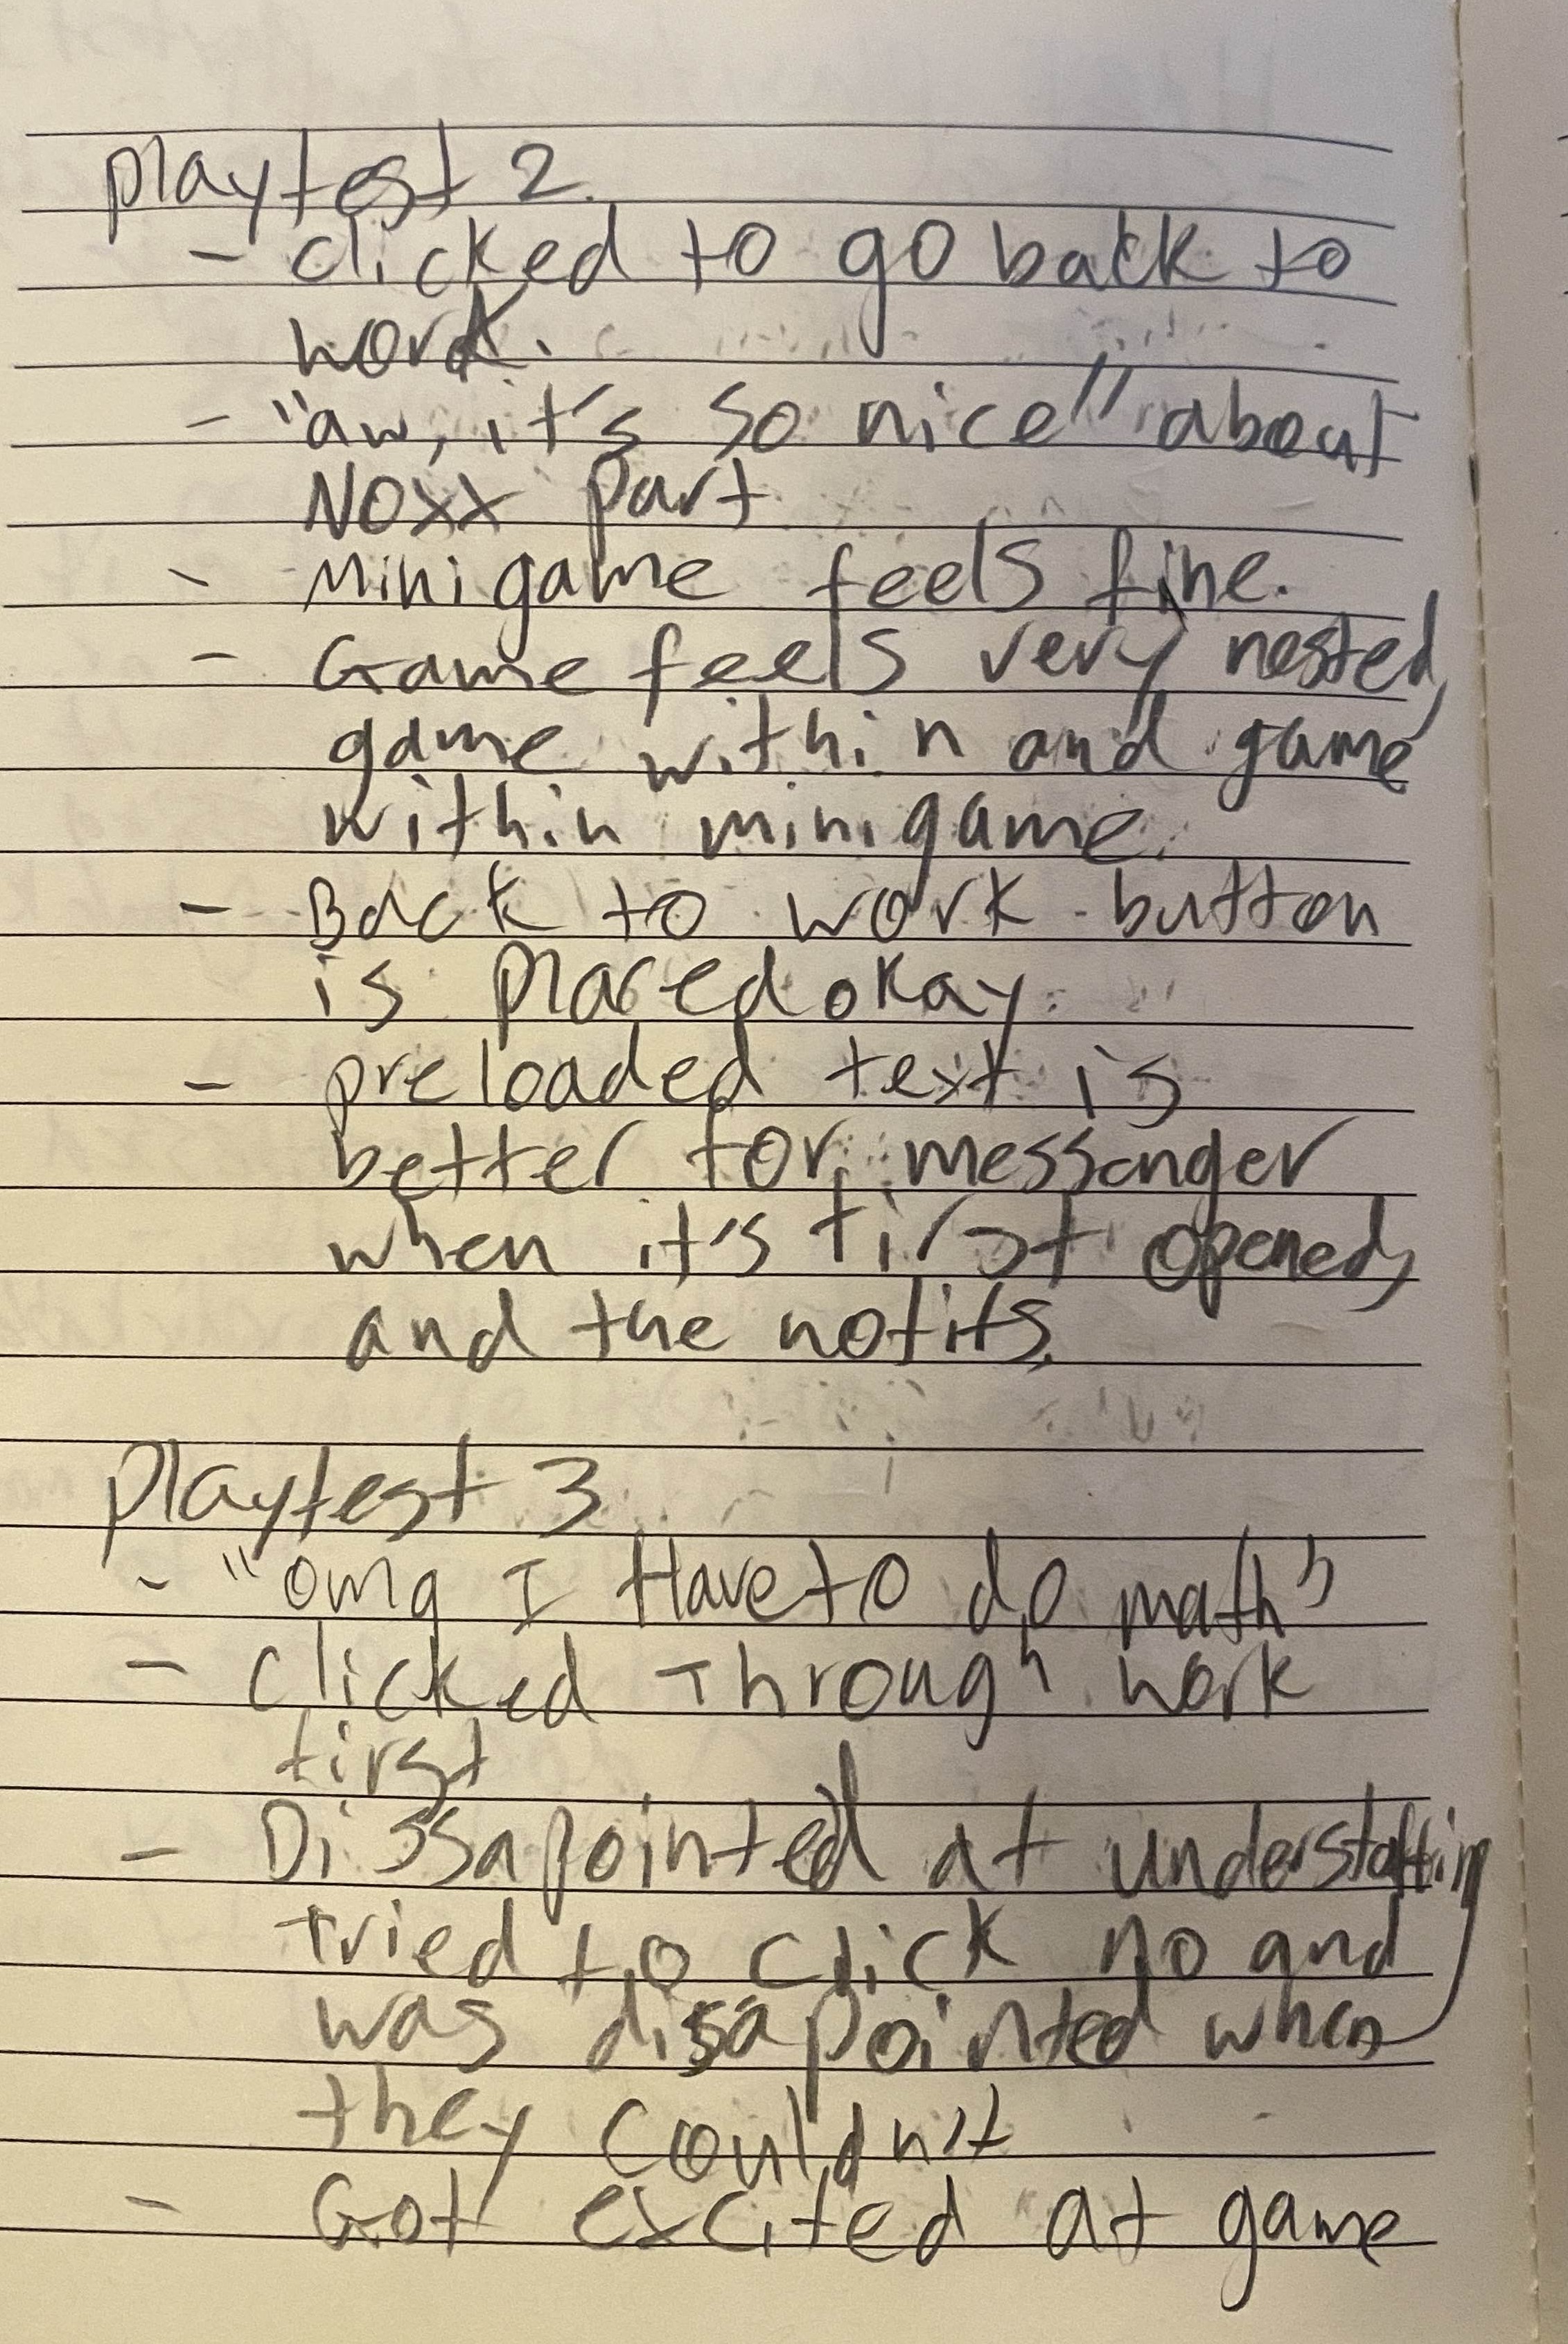 playtest 2.
- clicked to go back to
work.
- "aw, it's so nice" about
Noxx part
- Minigame feels fine.
- Game feels very nested,
game within and game
within minigame.
- Back to work button
is placed okay.
- preloaded text is
better for messanger
when it's first opened,
and the notifs.
playtest 3
- "omg I Have to do math"
- clicked Through work
first
- Dissapointed at understaffing
tried to click no and
was disapointed when
they couldn't
- Got excited at game